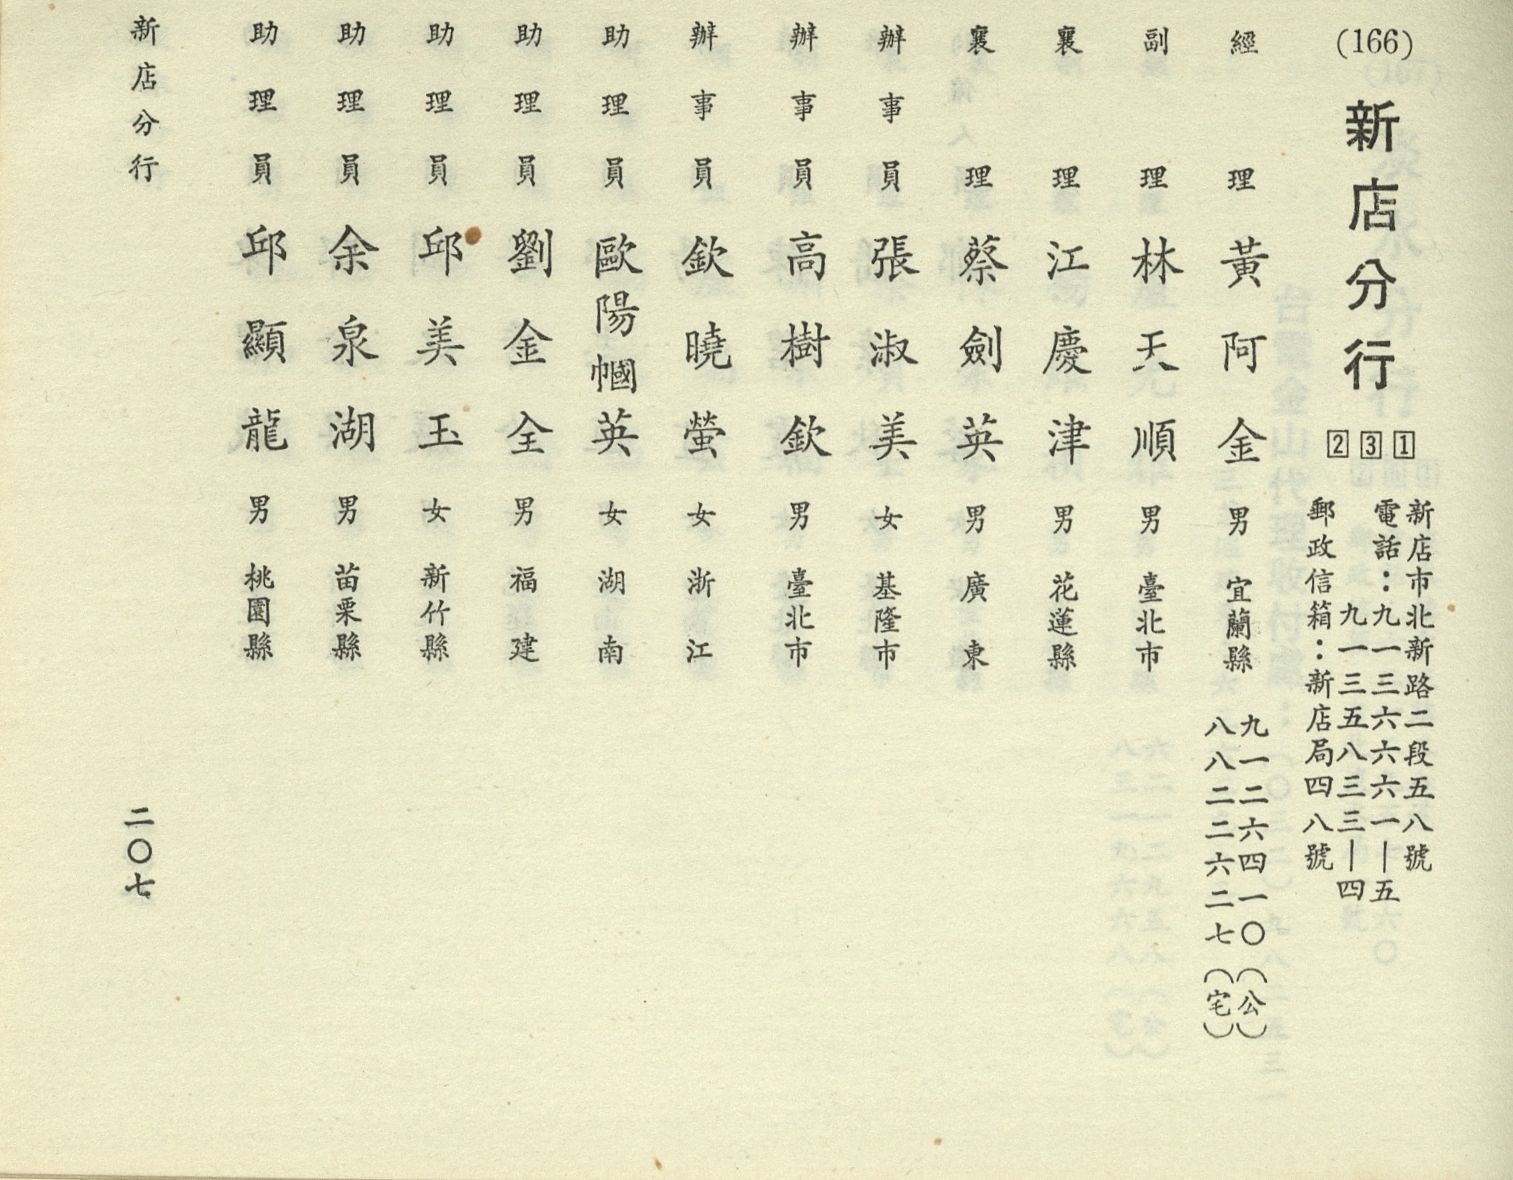 (166)
新店分行
231
新店市北新路二段五八號
電話：九一三六六六一｜五
九一三五八三三｜四
郵政信箱：新店局四八號
經理 黃阿金 男 宜蘭縣
九一二六四一〇（公）
八八二二六二七（宅）
副理 林天順 男 臺北市
襄理 江慶津 男 花蓮縣
襄理 蔡劍英 男 廣東
辦事員 張淑美 女 基隆市
辦事員 高樹欽 男 臺北市
辦事員 欽曉螢 女 浙江
助理員 歐陽幗英 女 湖南
助理員 劉金全 男 福建
助理員 邱美玉 女 新竹縣
助理員 余泉湖 男 苗栗縣
助理員 邱顯龍 男 桃園縣
新店分行
二〇七